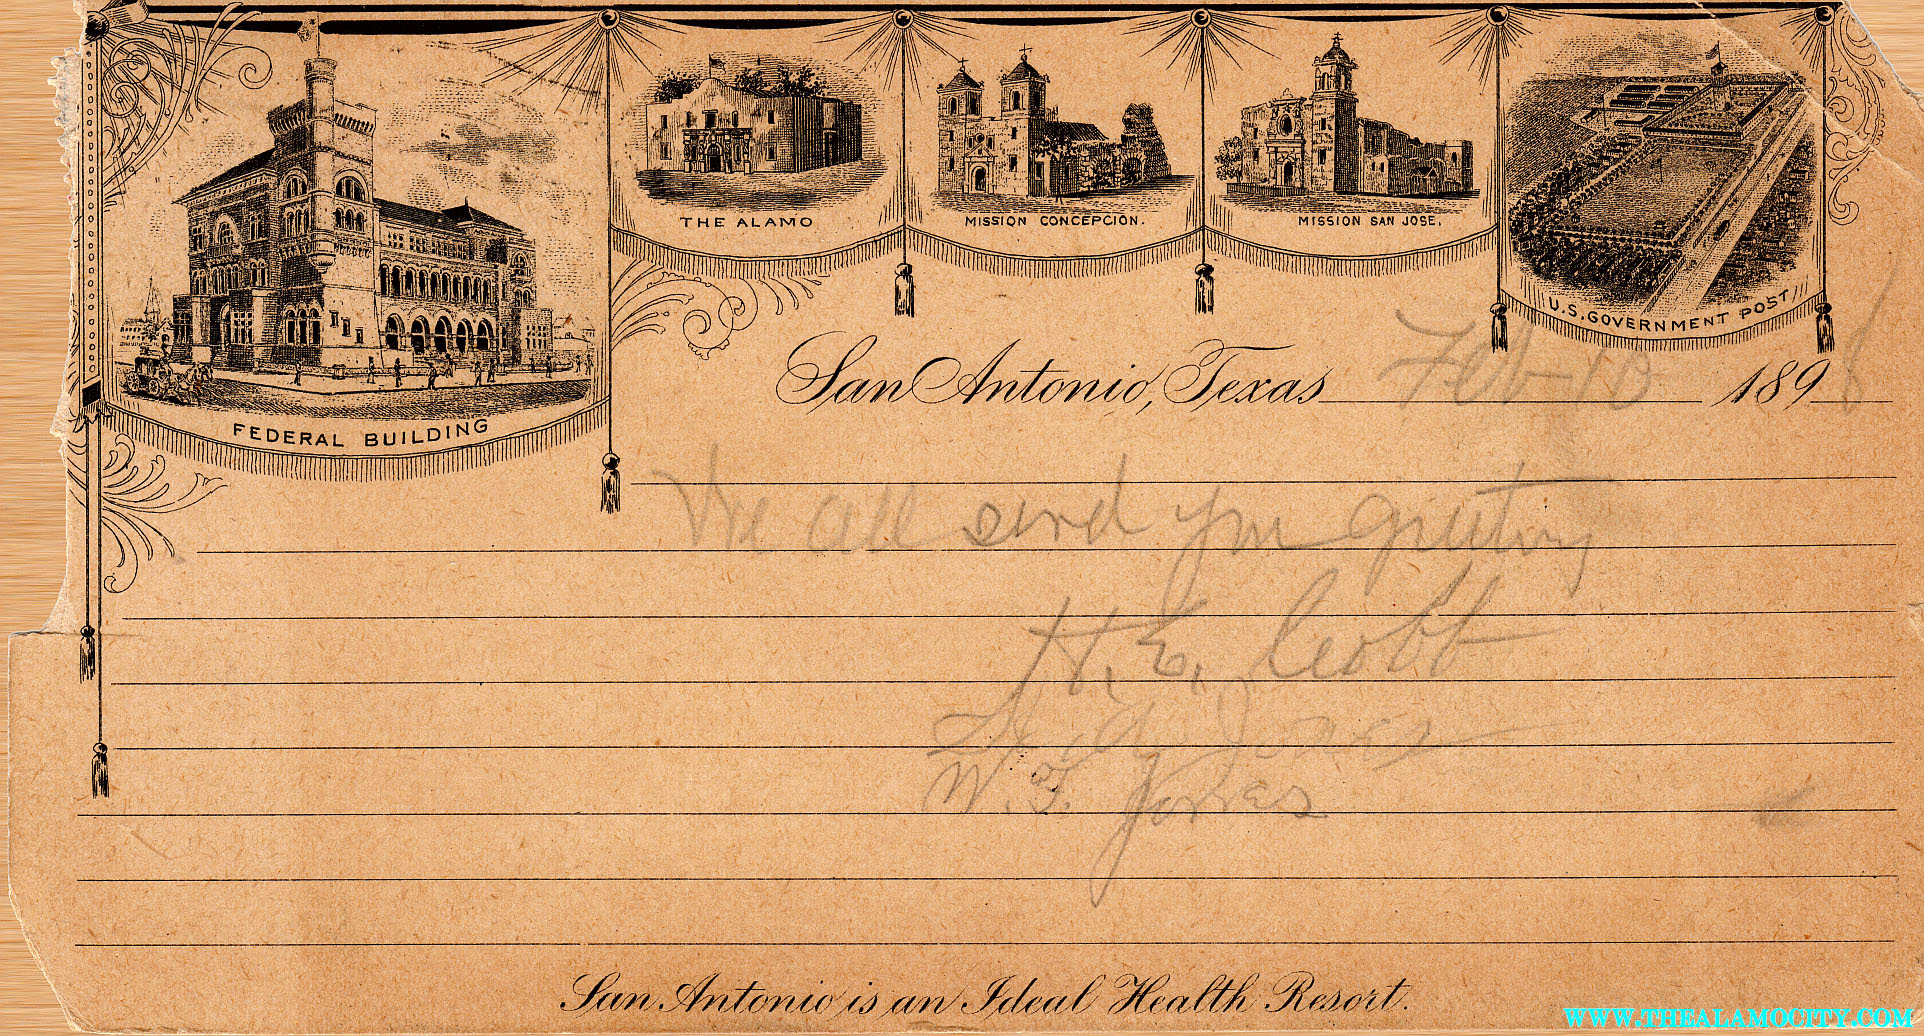 THE ALAMO
MISSION CONCEPCION.
MISSION SAN JOSE.
U.S. GOVERNMENT POST
FEDERAL BUILDING
San Antonio, Texas Feb 10 1898
We all send you greeting
H. E. Cobb
Jones
W. F. Jones
San Antonio is an Ideal Health Resort.
WWW.THEALAMOCITY.COM